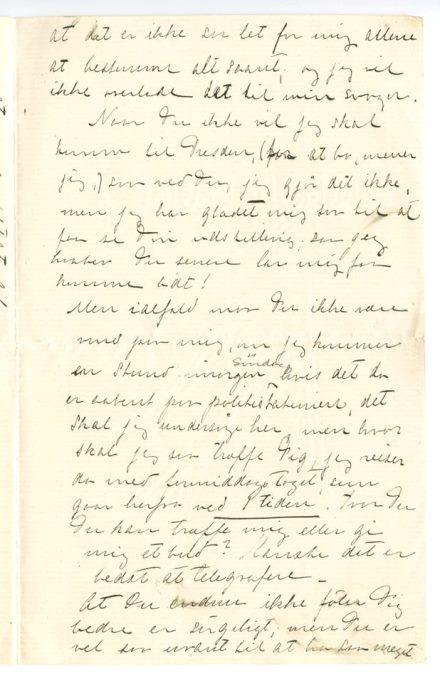 at det er ikke saa let for mig allene
at bestemme alt saant, og jeg vil
ikke overlade det til min svoger.
Naar Du ikke vil jeg skal
komme til Dresden, (for at bo, mener
jeg,) saa ved Du, jeg gjør det ikke,
men jeg har glædet mig saa til at
faa se Din udstilling, saa jeg
haaber Du senere lar mig faa
komme lidt!
Men ialfald maa Du ikke være
vred paa mig, om jeg kommer
en stund imorgen Søndag hvis det da
er aabent paa politistationen, det
skal jeg undersøge her, men hvor
skal jeg saa træffe Dig, jeg reiser
da med formiddagstoget som
gaar herfra ved 9 tiden. Tror Du
Du kan træffe mig eller gi
mig et bud? Kanske det er
bedst at telegrafere _
At Du endnu ikke føler Dig
bedre er sørgeligt, men Du er
vel saa uvant til at ha saa meget